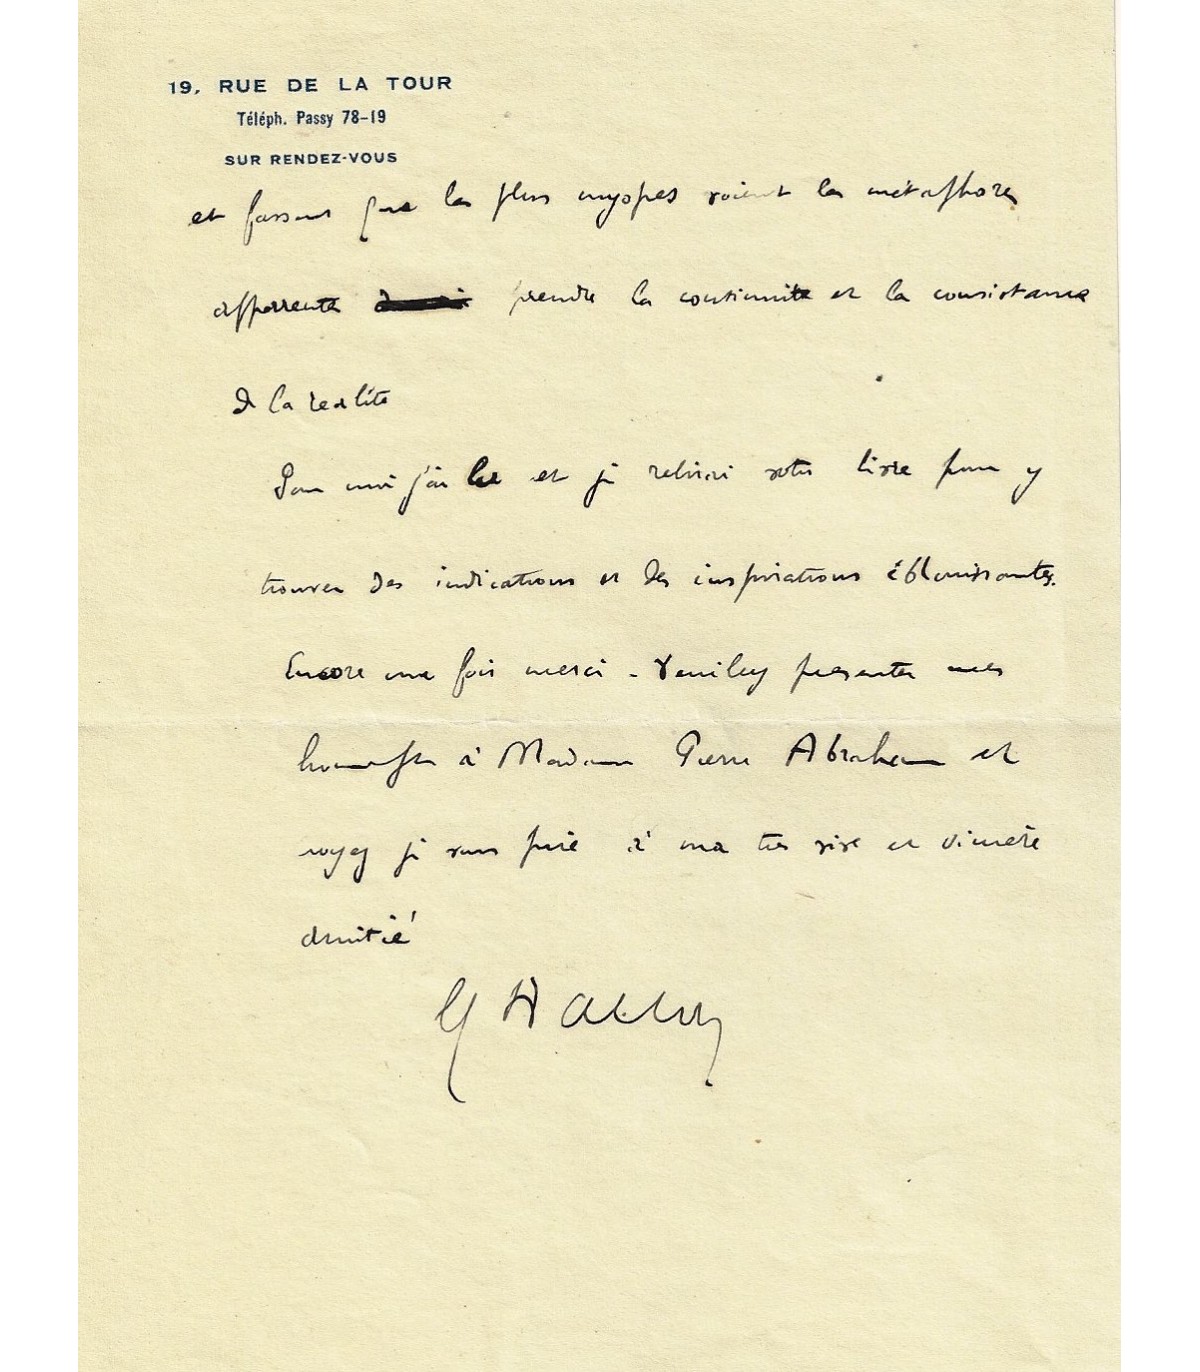 19, RUE DE LA TOUR
Téléph. Passy 78-19
SUR RENDEZ-VOUS
et fassent que les plus myopes voient les métaphores
apparentes prendre la continuité et la consistance
de la realité
Pour moi j'ai lu et je relirai votre livre pour y
trouver des indications et des inspirations éblouissantes.
Encore une fois merci - Veuillez presenter mes
hommages à Madame Pierre Abraham et
croyez je vous prie à ma très vive et sincère
amitié